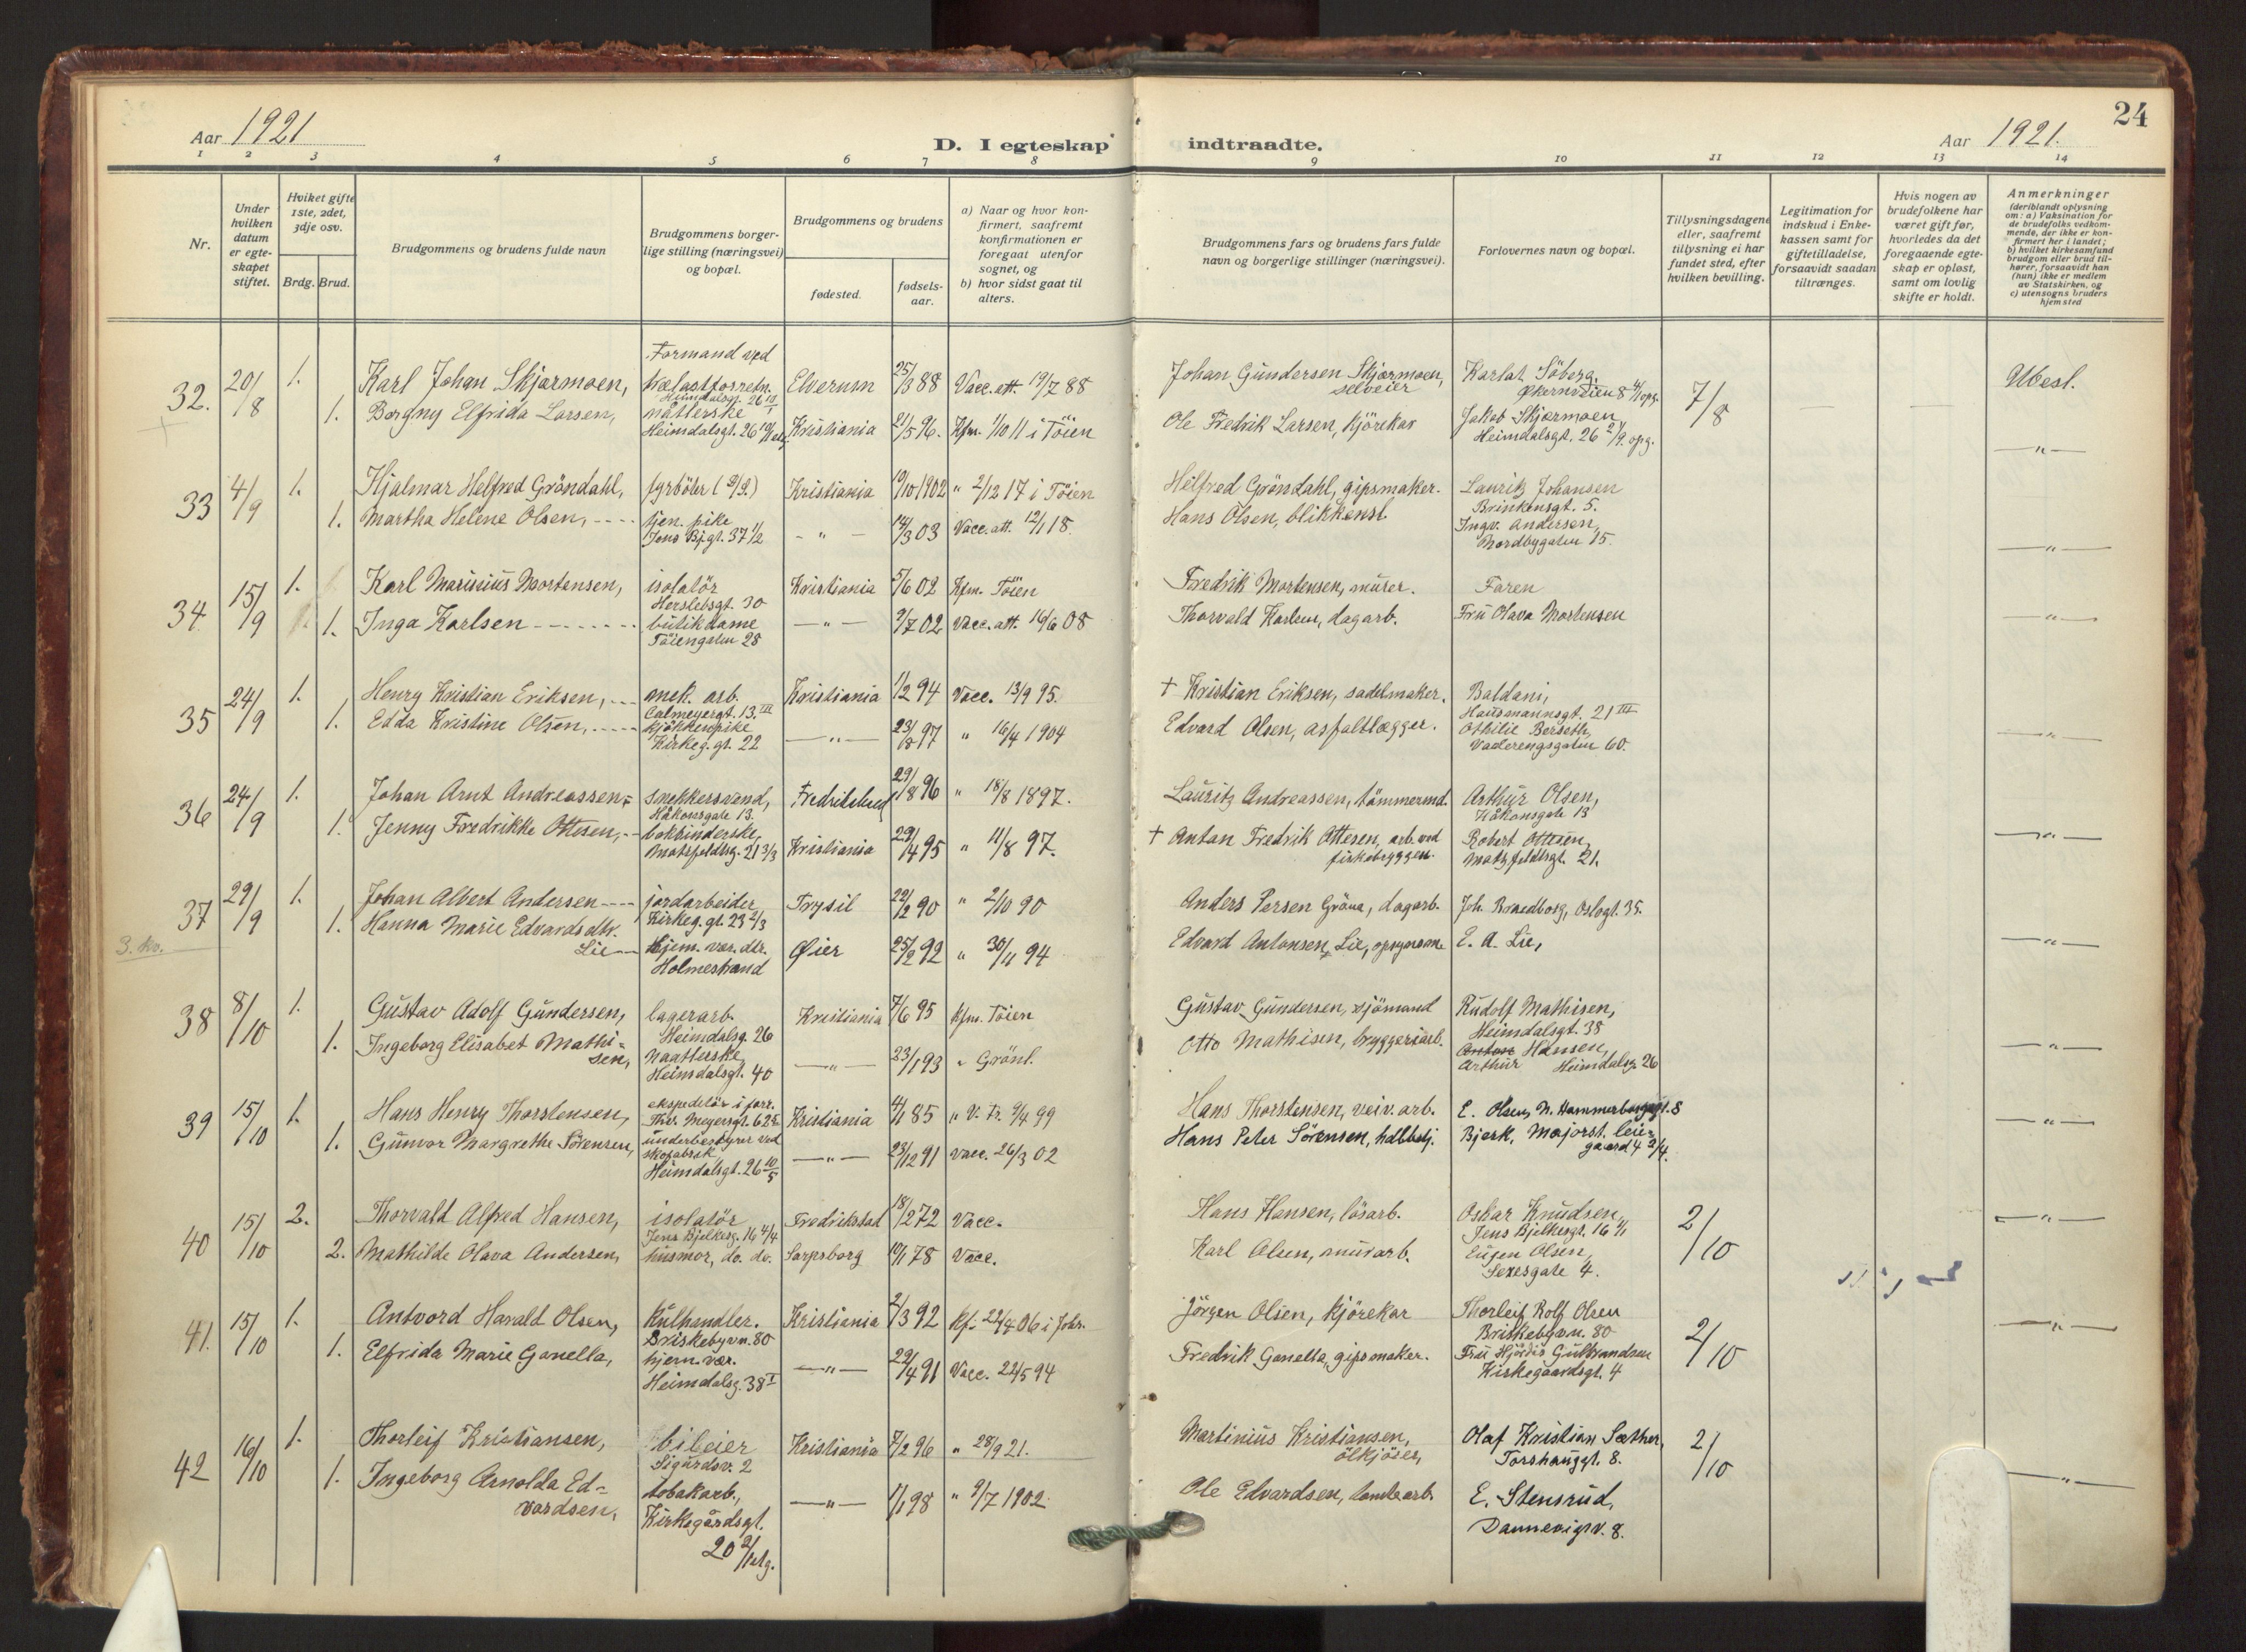 24
Aar 1921
D. I egteskap indtraadte.
Aar 1921.
1 2 3 4 5 6 7 8 9 10 11 12 13 14
Nr.
Under hvilken datum er egte-skapet stiftet.
Hviket gifte 1ste, 2det, 3dje osv.
Brdg. Brud.
Brudgommens og brudens fulde navn
Brudgommens borger-lige stilling (næringsvei) og bopæl.
Brudgommens og brudens
fødested.
fødsels-aar.
a) Naar og hvor kon-firmert, saafremt konfirmationen er foregaat utenfor sognet, og
b) hvor sidst gaat til alters.
Brudgommens fars og brudens fars fulde navn og borgerlige stillinger (næringsvei).
Forlovernes navn og bopæl.
Tillysningsdagene eller, saafremt tillysning ei har fundet sted, efter hvilken bevilling.
Legitimation for indskud i Enke-kassen samt for giftetilladelse, forsaavidt saadan tiltrænges.
Hvis nogen av brudefolkene har været gift før, hvorledes da det foregaaende egte-skap er opløst, samt om lovlig skifte er holdt.
Anmerkninger
(deriblandt oplysning om: a) Vaksination for de brudefolks vedkom-mende, der ikke er kon-firmert her i landet; b) hvilket kirkesamfund brudgom eller brud til-hører, forsaavidt han (hun) ikke er medlem av Statskirken, og c) utensogns bruders hjemsted
32. 20/8 1. Karl Johan Skjærmoen, Formand ved trælastforretn. Heimdalsgt. 26 Elverum 25/3 88 Vacc. att. 19/7 88 Johan Gundersen Skjærmoen, selveier Søberg, Økernveien 8 4/1 opg. 7/8 Ubesl.
1. Borgny Elfrida Larsen, måtterske Heimdalsgt. 26 Kristiania 21/5 96. Kfm. 1/10 11 i Töien Ole Fredrik Larsen, kjörekar Jakob Skjærmoen, Heimdalsgt. 26 2/9. opg. — " —
33 4/9 1. Hjalmar Helfred Gröndahl, fyrböter Kristiania 19/10 1902 " 2/12 17 i Töien Helfred Gröndahl, gipsmaker. Lauritz Johansen Brinkensgt. 5.
1. Martha Helene Olsen, tjen. pike Jens Bj.gt. 37 1/2 - " - 14/3 03 Vacc. att. 12/1 18. Hans Olsen, blikkensl. Ingv. Andersen, Nordbygaten 15. — " —
34. 15/9 1. Karl Marinius Mortensen, isolatör Herslebsgt. 30 Kristiania 5/6 02 Kfm. Töien Fredrik Mortensen, murer. Faren
1. Inga Karlsen butikdame Töiengaten 28 — " — 9/7 02 Vacc. att. 16/6 08 Thorvald Karlsen, dagarb. Fru Olava Mortensen — " —
35 24/9 1. Henry Kristian Eriksen, mek. arb. Calmeyersgt. 13. III Kristiania 1/2 94 Vacc. 13/9 95. † Kristian Eriksen, sadelmaker. Baldani, Hausmannsgt. 21 III
1. Edda Kristine Olsen, kjøkkenpike Kirkeg. gt. 22 — " — 23/8 97 " 16/4 1904 Edvard Olsen, asfaltlægger. Othilie Berseth, Vaalerengsgaten 60. — " —
36 24/9 1. Johan Arnt Andreassen, snekkersvend, Håkonsgate 13. 29/8 96 " 18/8 1897. Lauritz Andreassen, tömmermd. Arthur Olsen, Håkonsgate 13
1. Jenny Fredrikke Ottesen, bokbinderske, Motzfeldtsg. 21 3/3 Kristiania 29/4 95 " 11/8 97. † Anton Fredrik Ottesen, arb. ved fiskebryggen. Robert Ottesen, Motzfeldtsgt. 21. — " —
37 29/9 1. Johan Albert Andersen jordarbeider Kirkeg. gt. 23 2/3 Trysil 22/2 90 " 2/10 90 Anders Persen Gröna, dagarb. Joh. Brædborg, Oslogt. 35.
3. kv. 1. Hanna Marie Edvardsdtr. Lie Hjem. vær. dtr. Holmestrand Øier 25/2 92 " 30/11 94 Edvard Antonsen Lie, opsynsm. E. A. Lie, — " —
38 8/10 1. Gustav Adolf Gundersen, lagerarb. Heimdalsg. 26 Kristiania 7/6 95 Kfm. Töien Gustav Gundersen, sjömand Rudolf Mathisen, Heimdalsgt. 38
1. Ingeborg Elisabet Mathi=sen, Naatterske Heimdalsgt. 40 — " — 23/1 93 " Grönl. Otto Mathisen, bryggeriarb. Anton Hansen, Arthur Heimdalsg. 26 — " —
39 15/10 1. Hans Henry Thorstensen, ekspeditör i forr. Thv. Meyersgt. 62 Kristiania 4/1 85 " V. Fr. 9/4 99 Hans Thorstensen, veiv. arb. E. Olsen, N. Hammerborggt. 8
1. Gunvor Margrethe Sörensen, underbestyrer ved skofabrik, Heimdalsgt. 26 10/5 — " — 23/12 91 Vacc. 26/3 02 Hans Peter Sörensen, Bjerk, Majorst. leie=gaard 4 3/4. — " —
40 15/10 2. Thorvald Alfred Hansen, isolatör Jens Bjelkesg. 16 4/4 Fredrikstad 18/2 72 Vacc. Hans Hansen, lösarb. Oskar Knudsen, Jens Bjelkesgt. 16 2/10
2. Mathilde Olava Andersen, husmor, do. do. Sarpsborg 19/1 78 Vacc. Karl Olsen, murarb. Eugen Olsen, Sexesgate 4. — " —
41. 15/10 1. Antvord Harald Olsen, Kulhandler. Briskebyvn. 80 Kristiania 2/3 92 Kf. 22/4 06 i Joh. Jörgen Olsen, kjörekar Thorleif Rolf Olsen Briskebyvn. 80 2/10
1. Elfrida Marie Ganella, hjem. vær. Heimdalsg. 38 I — " — 22/4 91 Vacc. 22/5 94 Fredrik Ganella, gipsmaker. Fru Hjördis Gulbrandsen Kirkegaardsgt. 4 — " —
42 16/10 1. Thorleif Kristiansen, bileier Sigurdsv. 2 Kristiania 7/2 96 " 28/9 21. Martinius Kristiansen, ölkjörer, Olaf Kristian Sæther, Torshauggt. 8. 2/10
1. Ingeborg Arnolda Ed=vardsen, tobakarb., Kirkegårdsgt. 20 2/1 elg. — " — 1/1 98 " 9/7 1902 Ole Edvardsen, E. Stensrud, Dannevigsv. 8. — " —